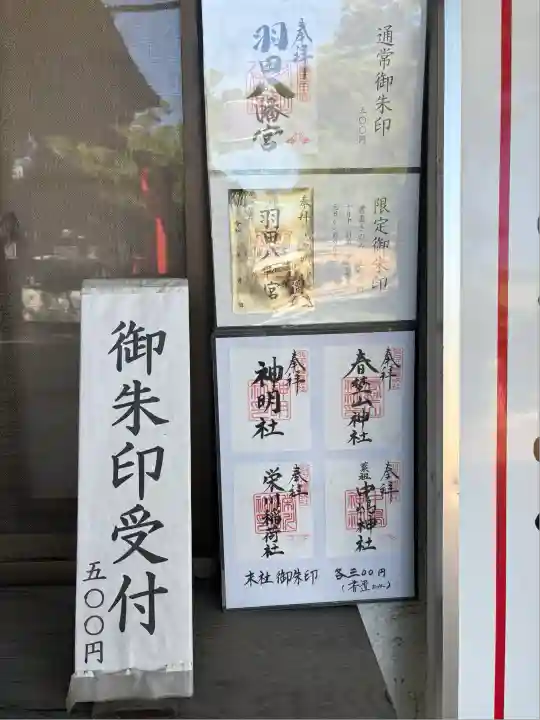 通常御朱印
五〇〇円
奉拝
羽田八幡宮
限定御朱印
奉拝
羽田八幡宮
奉拝
春埜山神社
奉拝
神明社
奉拝
奉拝
栄川稲荷社
末社御朱印 各三〇〇円
御朱印受付
五〇〇円